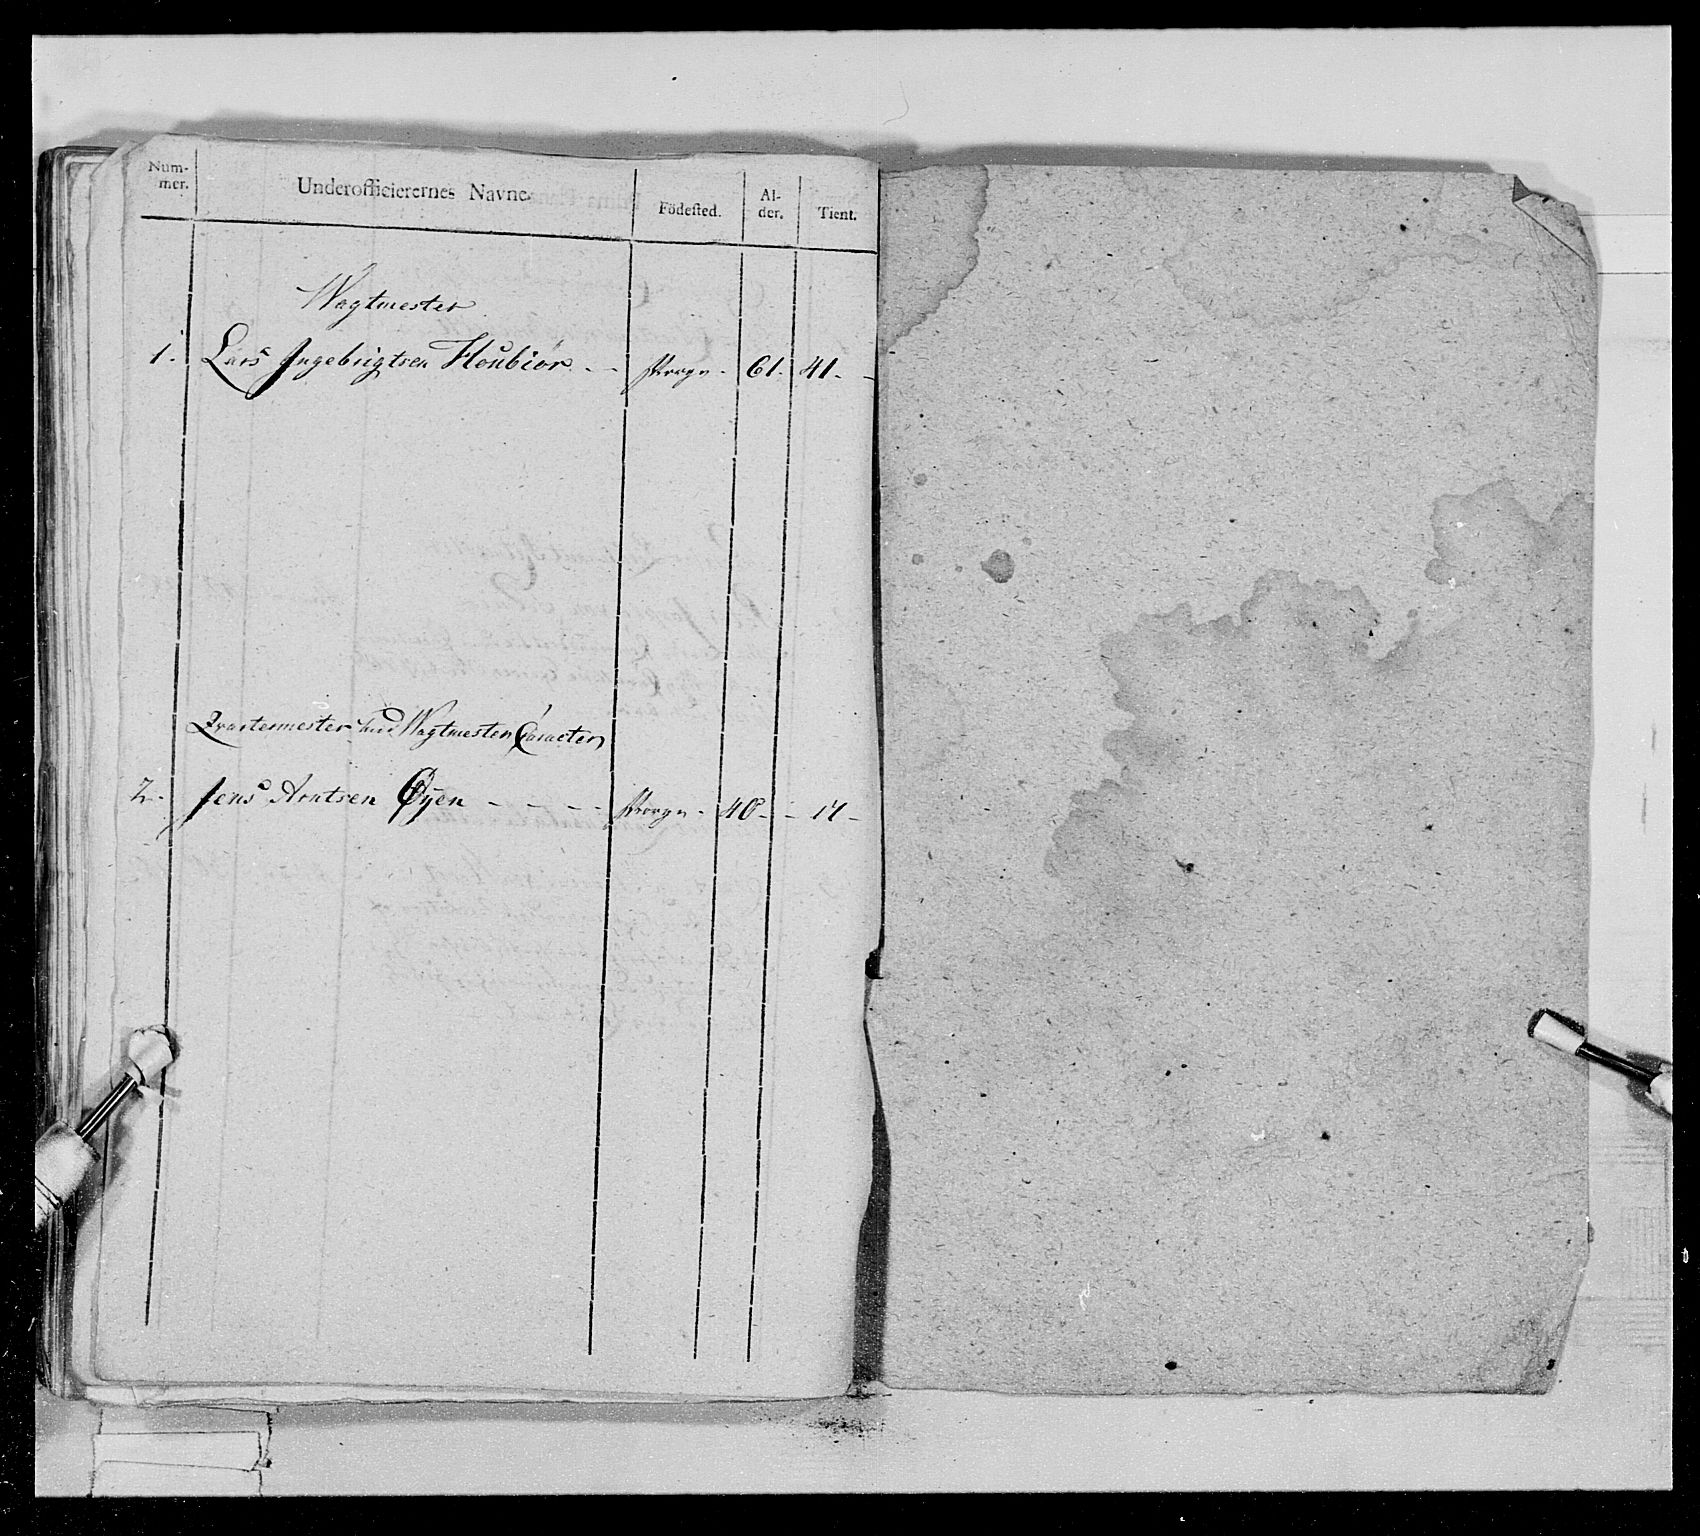 Num-
mer.
Underofficierernes Navne.
Födested.
Al-
der.
Tient.
Wagtmester
1. Lars Ingebrigtsen Houbiör - - Norge - 61. 41. -
Qvarteermester med Wagtmester Caracter
2. Jens Arntsen Øyen - - - - Norge - 40 - - 17 -